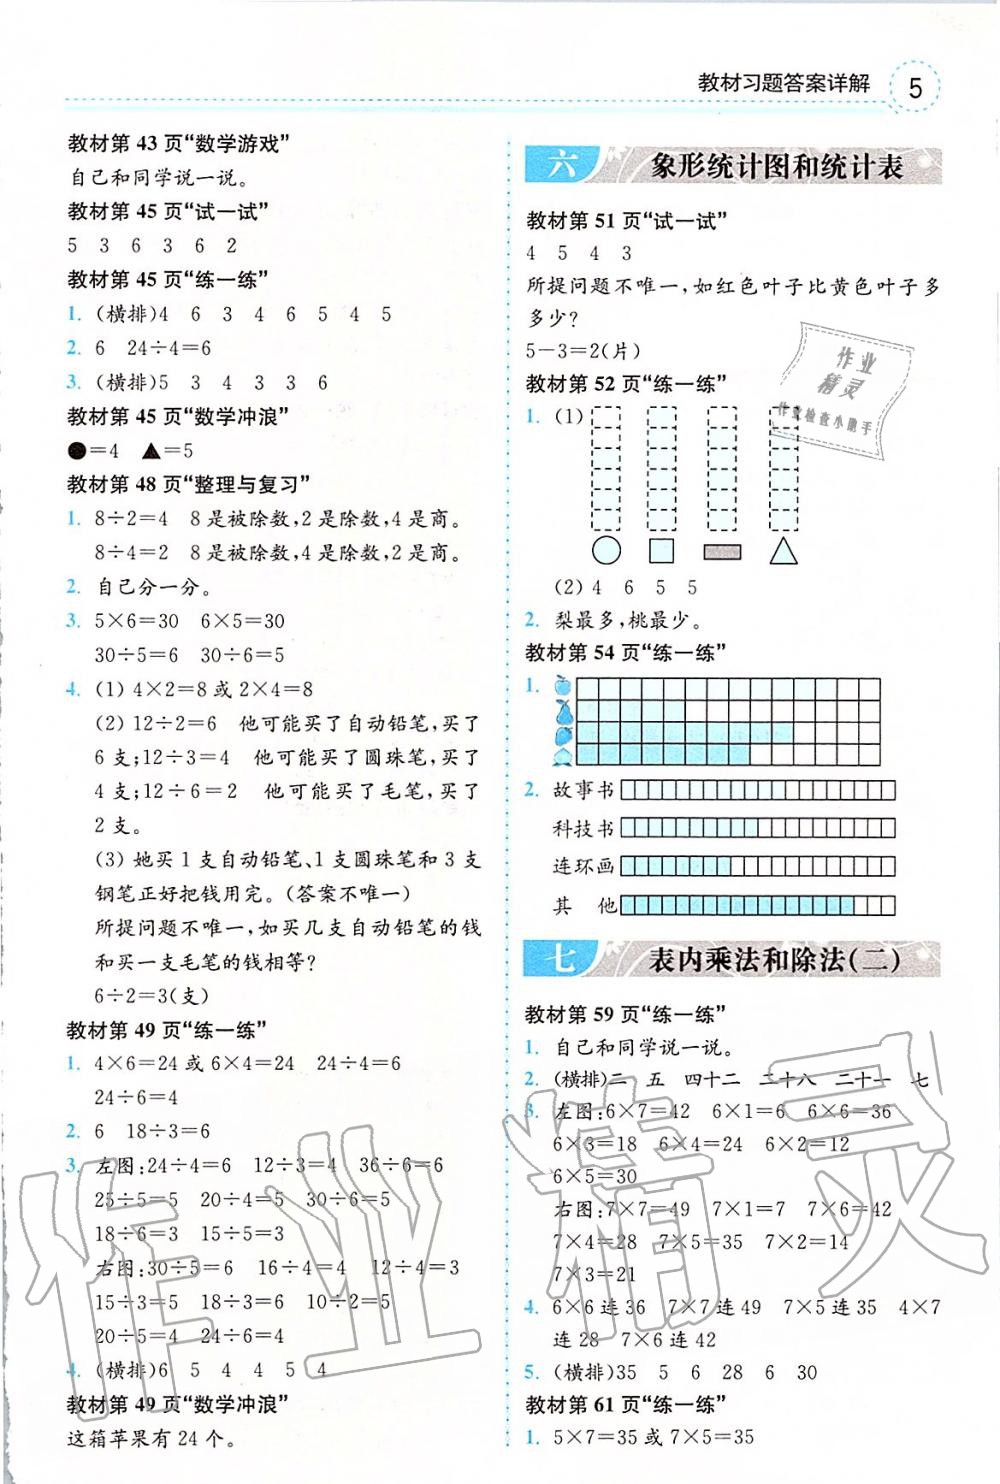 教材习题答案详解 5
教材第 43 页“数学游戏”
自己和同学说一说。
教材第 45 页“试一试”
5 3 6 3 6 2
教材第 45 页“练一练”
1. (横排)4 6 3 4 6 5 4 5
2. 6 24÷4=6
3. (横排)5 3 4 3 3 6
教材第 45 页“数学冲浪”
●=4 ▲=5
教材第 48 页“整理与复习”
1. 8÷2=4 8是被除数,2是除数,4是商。
8÷4=2 8是被除数,4是除数,2是商。
2. 自己分一分。
3. 5×6=30 6×5=30
30÷5=6 30÷6=5
4. (1) 4×2=8或2×4=8
(2) 12÷2=6 他可能买了自动铅笔,买了
6支;12÷3=4 他可能买了圆珠笔,买了
4支;12÷6=2 他可能买了毛笔,买了
2支。
(3) 她买1支自动铅笔、1支圆珠笔和3支
钢笔正好把钱用完。(答案不唯一)
所提问题不唯一,如买几支自动铅笔的钱
和买一支毛笔的钱相等?
6÷2=3(支)
教材第 49 页“练一练”
1. 4×6=24或6×4=24 24÷4=6
24÷6=4
2. 6 18÷3=6
3. 左图:24÷4=6 12÷3=4 36÷6=6
25÷5=5 20÷4=5 30÷6=5
18÷6=3 15÷5=3
右图:30÷5=6 16÷4=4 12÷4=3
15÷5=3 18÷3=6 10÷2=5
20÷5=4 24÷6=4
4. (横排)6 5 4 5 5 4
教材第 49 页“数学冲浪”
这箱苹果有24个。
六 象形统计图和统计表
教材第 51 页“试一试”
4 5 4 3
所提问题不唯一,如红色叶子比黄色叶子多
多少?
5-3=2(片)
教材第 52 页“练一练”
1. (1)
(2) 4 6 5 5
2. 梨最多,桃最少。
教材第 54 页“练一练”
1.
2. 故事书
科技书
连环画
其 他
七 表内乘法和除法(二)
教材第 59 页“练一练”
1. 自己和同学说一说。
2. (横排)二 五 四十二 二十八 二十一 七
3. 左图:6×7=42 6×1=6 6×6=36
6×3=18 6×4=24 6×2=12
6×5=30
右图:7×7=49 7×1=7 7×6=42
7×4=28 7×5=35 7×2=14
7×3=21
4. 6×6连36 7×7连49 7×5连35 4×7
连28 7×6连42
5. (横排)35 5 6 28 6 30
教材第 61 页“练一练”
1. 5×7=35或7×5=35
作业
精灵
作业检查小助手
作业精灵